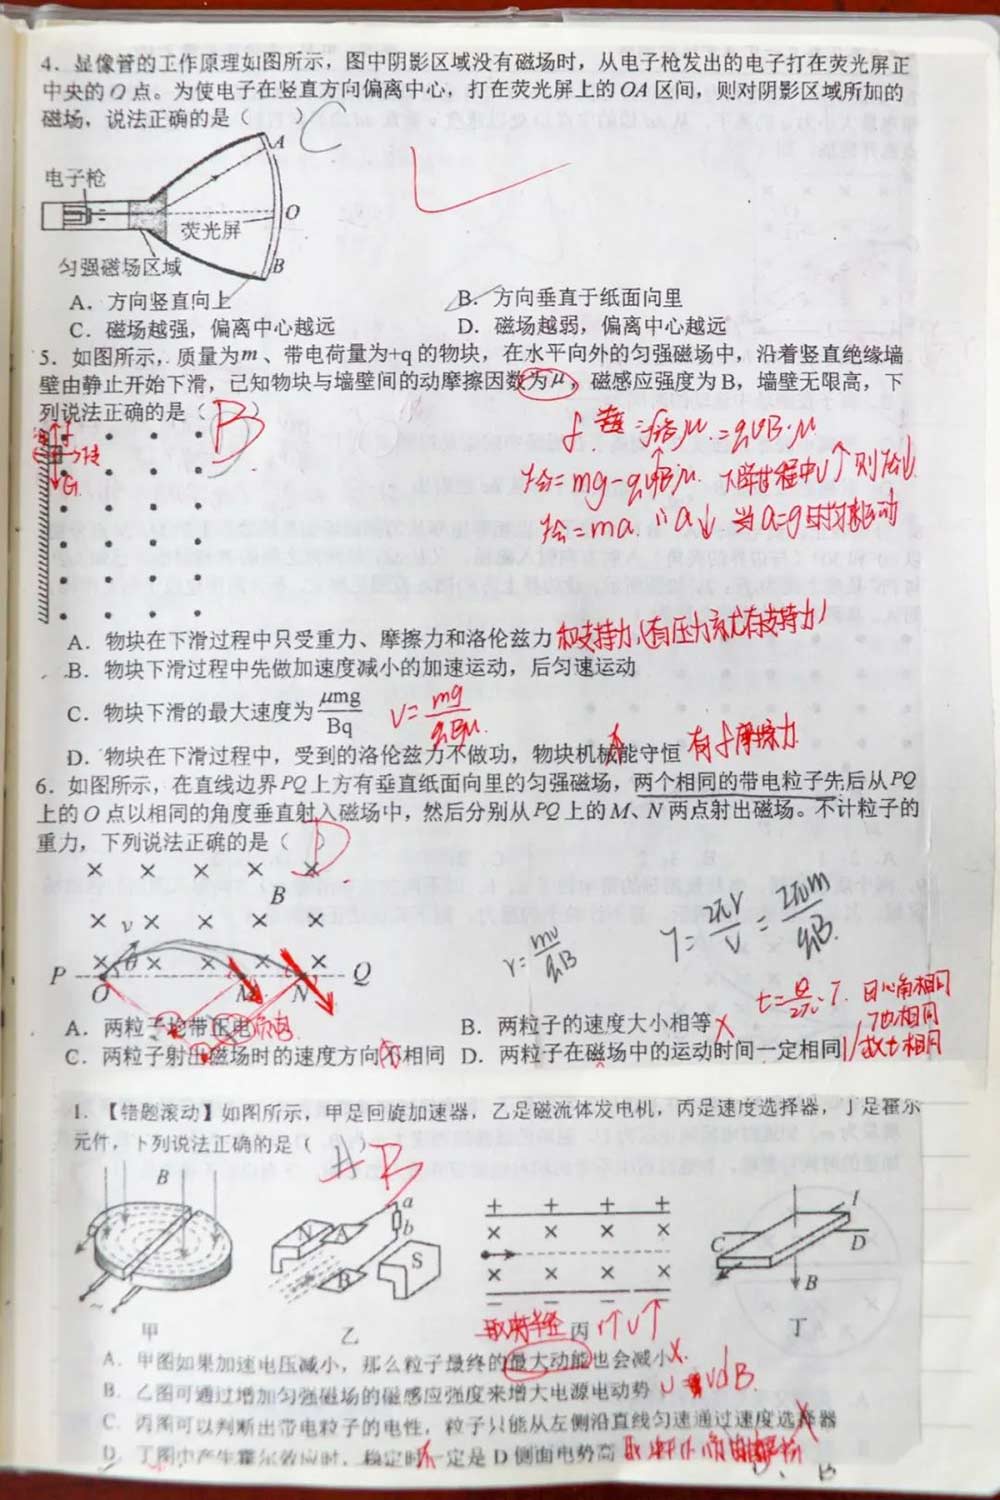 4．显像管的工作原理如图所示，图中阴影区域没有磁场时，从电子枪发出的电子打在荧光屏正
中央的O点。为使电子在竖直方向偏离中心，打在荧光屏上的OA区间，则对阴影区域所加的
磁场，说法正确的是（ C
A
电子枪
O
荧光屏
B
匀强磁场区域
A．方向竖直向上 B．方向垂直于纸面向里
C．磁场越强，偏离中心越远 D．磁场越弱，偏离中心越远
5．如图所示，质量为m、带电荷量为+q的物块，在水平向外的匀强磁场中，沿着竖直绝缘墙
壁由静止开始下滑，已知物块与墙壁间的动摩擦因数为μ，磁感应强度为B，墙壁无限高，下
列说法正确的是（ B ）
=qvB·μ
F合=mg-qvBμ 下降过程中v↑则F合↓
F合=ma ∴a↓
G
A．物块在下滑过程中只受重力、摩擦力和洛伦兹力 和支持力(有压力就有支持力)
B．物块下滑过程中先做加速度减小的加速运动，后匀速运动
C．物块下滑的最大速度为μmg/Bq v=mg/qBμ
D．物块在下滑过程中，受到的洛伦兹力不做功，物块机械能守恒 有f摩擦力
6．如图所示，在直线边界PQ上方有垂直纸面向里的匀强磁场，两个相同的带电粒子先后从PQ
上的O点以相同的角度垂直射入磁场中，然后分别从PQ上的M、N两点射出磁场。不计粒子的
重力，下列说法正确的是（ D ）
B
v
θ
P O M N Q
r=mv/qB T=2πr/v=2πm/qB
t=θ/2π·T 圆心角相同
T也相同
故t相同
A．两粒子均带正电 负电 B．两粒子的速度大小相等 ×
C．两粒子射出磁场时的速度方向不相同 D．两粒子在磁场中的运动时间一定相同
1．【错题滚动】如图所示，甲是回旋加速器，乙是磁流体发电机，丙是速度选择器，丁是霍尔
元件，下列说法正确的是（ A B ）
B
N A a b S B
C D I B
甲 乙 丙 丁
取决半径 r↑v↑
A．甲图如果加速电压减小，那么粒子最终的最大动能也会减小 ×
B．乙图可通过增加匀强磁场的磁感应强度来增大电源电动势 U vdB
C．丙图可以判断出带电粒子的电性，粒子只能从左侧沿直线匀速通过速度选择器 ×
D．丁图中产生霍尔效应时，稳定时一定是D侧面电势高